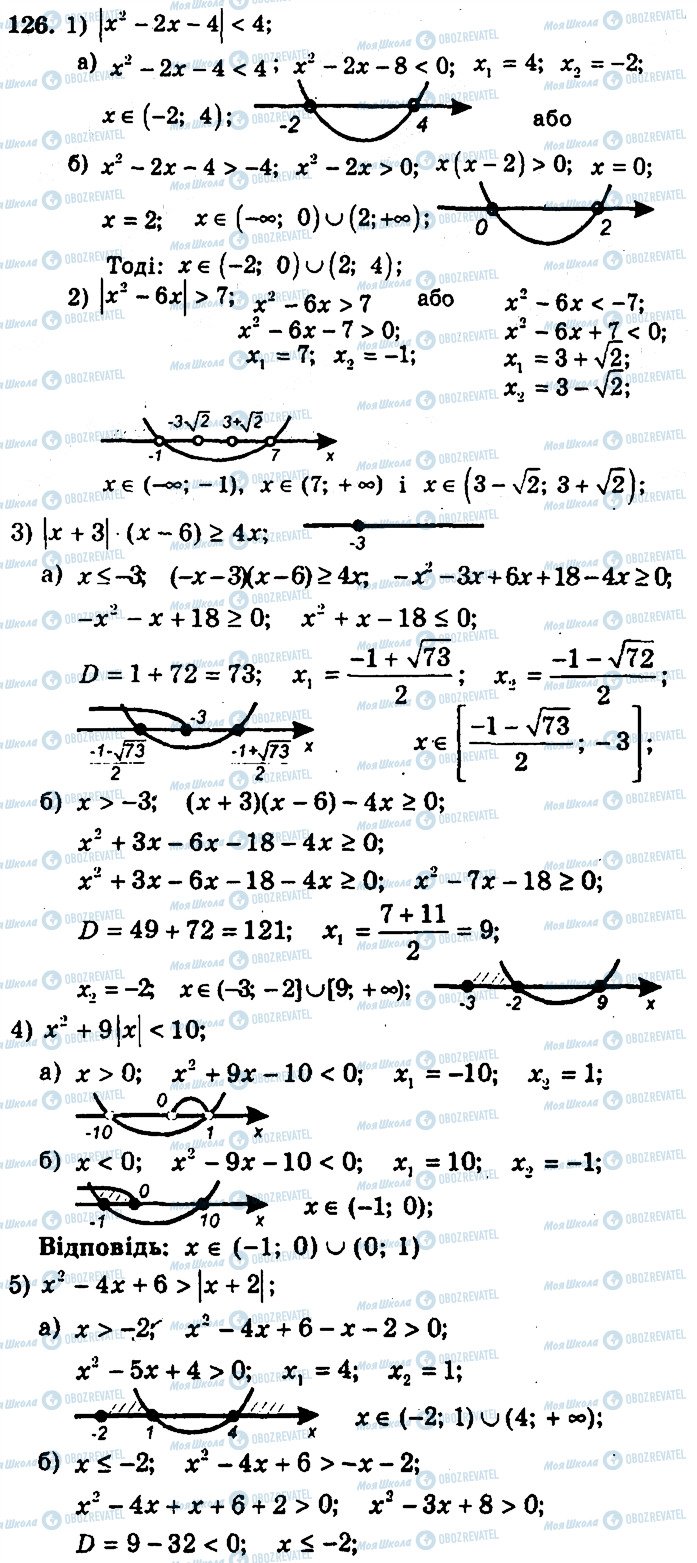 126. 1) |x² − 2x − 4| < 4;
а) x² − 2x − 4 < 4 ; x² − 2x − 8 < 0; x₁ = 4; x₂ = −2;
x ∈ (−2; 4);
-2 4
або
б) x² − 2x − 4 > −4; x² − 2x > 0; x(x − 2) > 0; x = 0;
x = 2; x ∈ (−∞; 0) ∪ (2; +∞);
0 2
Тоді: x ∈ (−2; 0) ∪ (2; 4);
2) |x² − 6x| > 7; x² − 6x > 7 або x² − 6x < −7;
x² − 6x − 7 > 0; x² − 6x + 7 < 0;
x₁ = 7; x₂ = −1; x₁ = 3 + √2;
x₂ = 3 − √2;
-3√2 3+√2
-1 7 x
x ∈ (−∞; −1), x ∈ (7; +∞) і x ∈ (3 − √2; 3 + √2);
3) |x + 3| · (x − 6) ≥ 4x;
-3
а) x ≤ −3; (−x − 3)(x − 6) ≥ 4x; −x² − 3x + 6x + 18 − 4x ≥ 0;
−x² − x + 18 ≥ 0; x² + x − 18 ≤ 0;
D = 1 + 72 = 73; x₁ = (−1 + √73)/2; x₂ = (−1 − √72)/2;
-3
(-1-√73)/2 (-1+√73)/2 x
x ∈ [(−1 − √73)/2; −3];
б) x > −3; (x + 3)(x − 6) − 4x ≥ 0;
x² + 3x − 6x − 18 − 4x ≥ 0;
x² + 3x − 6x − 18 − 4x ≥ 0; x² − 7x − 18 ≥ 0;
D = 49 + 72 = 121; x₁ = (7 + 11)/2 = 9;
x₂ = −2; x ∈ (−3; −2] ∪ [9; +∞);
-3 -2 9 x
4) x² + 9|x| < 10;
а) x > 0; x² + 9x − 10 < 0; x₁ = −10; x₂ = 1;
0
-10 1 x
б) x < 0; x² − 9x − 10 < 0; x₁ = 10; x₂ = −1;
0
-1 10 x
x ∈ (−1; 0);
Відповідь: x ∈ (−1; 0) ∪ (0; 1)
5) x² − 4x + 6 > |x + 2|;
а) x > −2; x² − 4x + 6 − x − 2 > 0;
x² − 5x + 4 > 0; x₁ = 4; x₂ = 1;
-2 1 4 x
x ∈ (−2; 1) ∪ (4; + ∞);
б) x ≤ −2; x² − 4x + 6 > −x − 2;
x² − 4x + x + 6 + 2 > 0; x² − 3x + 8 > 0;
D = 9 − 32 < 0; x ≤ −2;